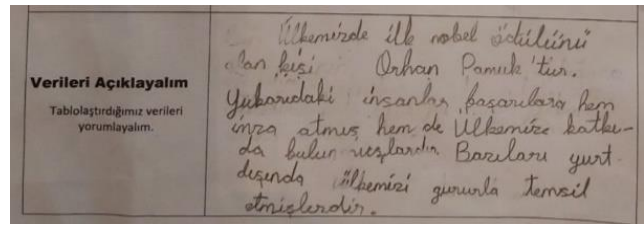 Verileri Açıklayalım
Tablolaştırdığımız verileri
yorumlayalım.
Ülkemizde ilk nobel ödülünü
alan kişi Orhan Pamuk'tur.
Yukarıdaki insanlar başarılara hem
imza atmış hem de Ülkemize katkı-
da bulun Bazıları yurt
dışında ülkemizi gururla temsil
etmişlerdir.